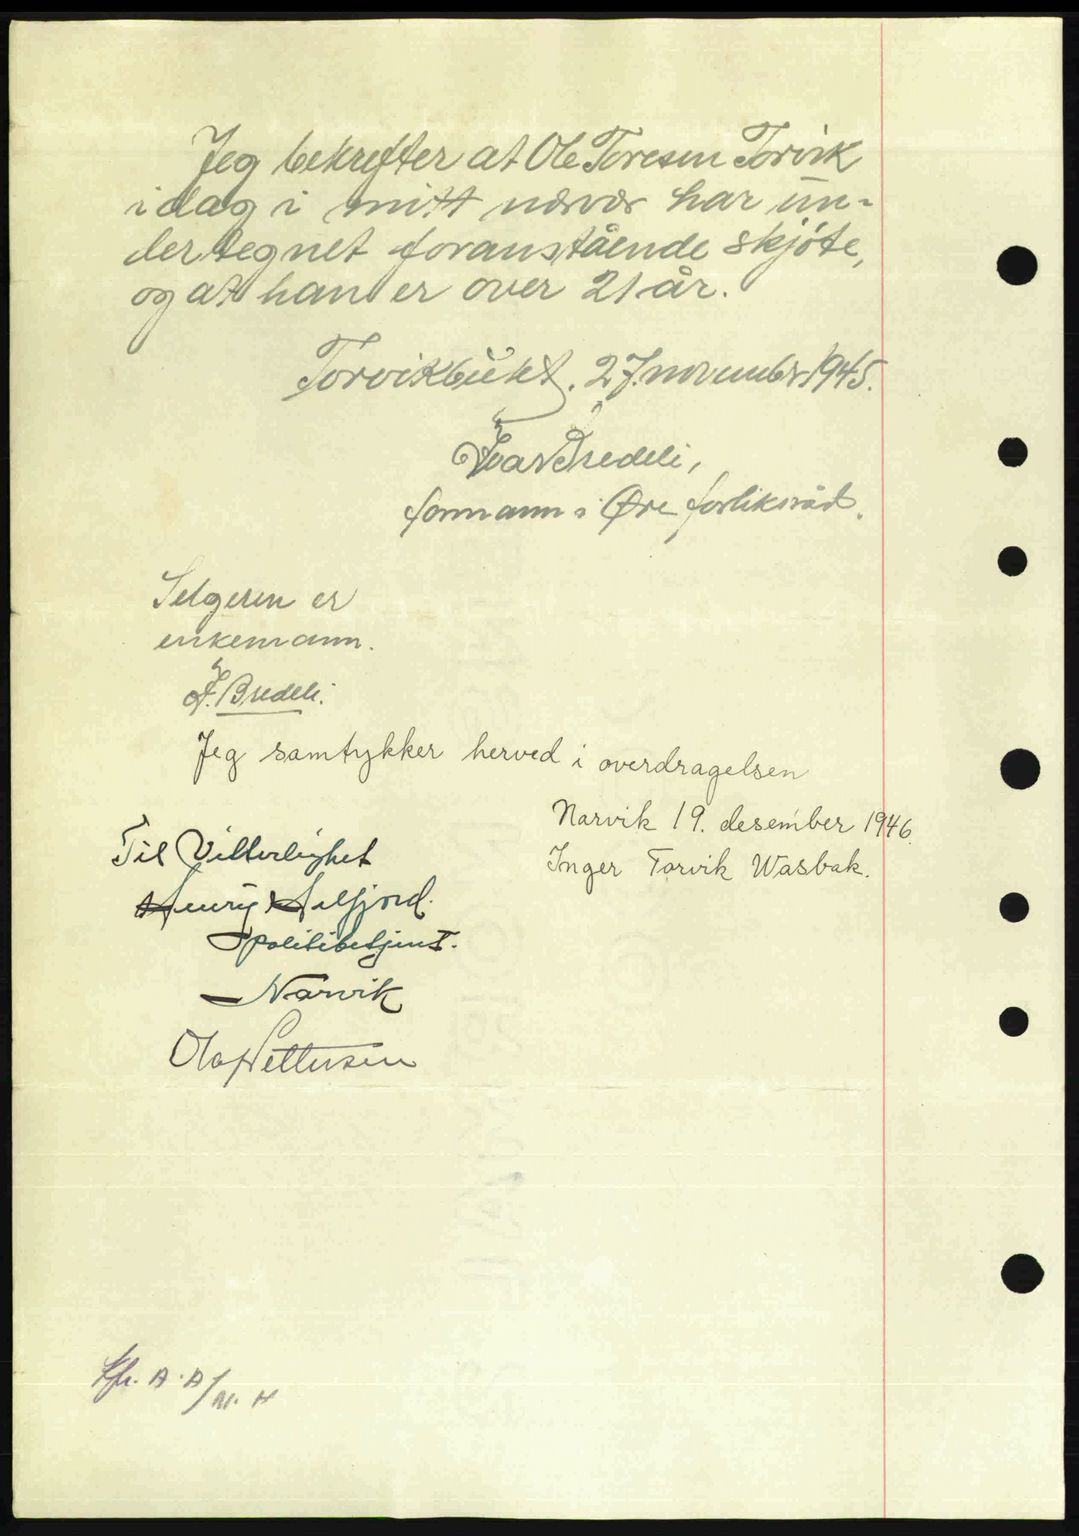 Jeg bekrefter at Ole Toresen Torvik
i dag i mitt nærvær har un-
dertegnet foranstående skjöte,
og at han er over 21 år.
Torvikbukt, 27. november 1945.
Ivar Bredeli,
formann i Øre forliksråd.
Selgeren er
enkemann.
I. Bredeli.
Jeg samtykker herved i overdragelsen
Narvik 19. desember 1946.
Inger Torvik Wasbak.
Til Vitterlighet
Henry
politibetjent.
Narvik
Ola Pettersen
Kfr. A. A/M. H